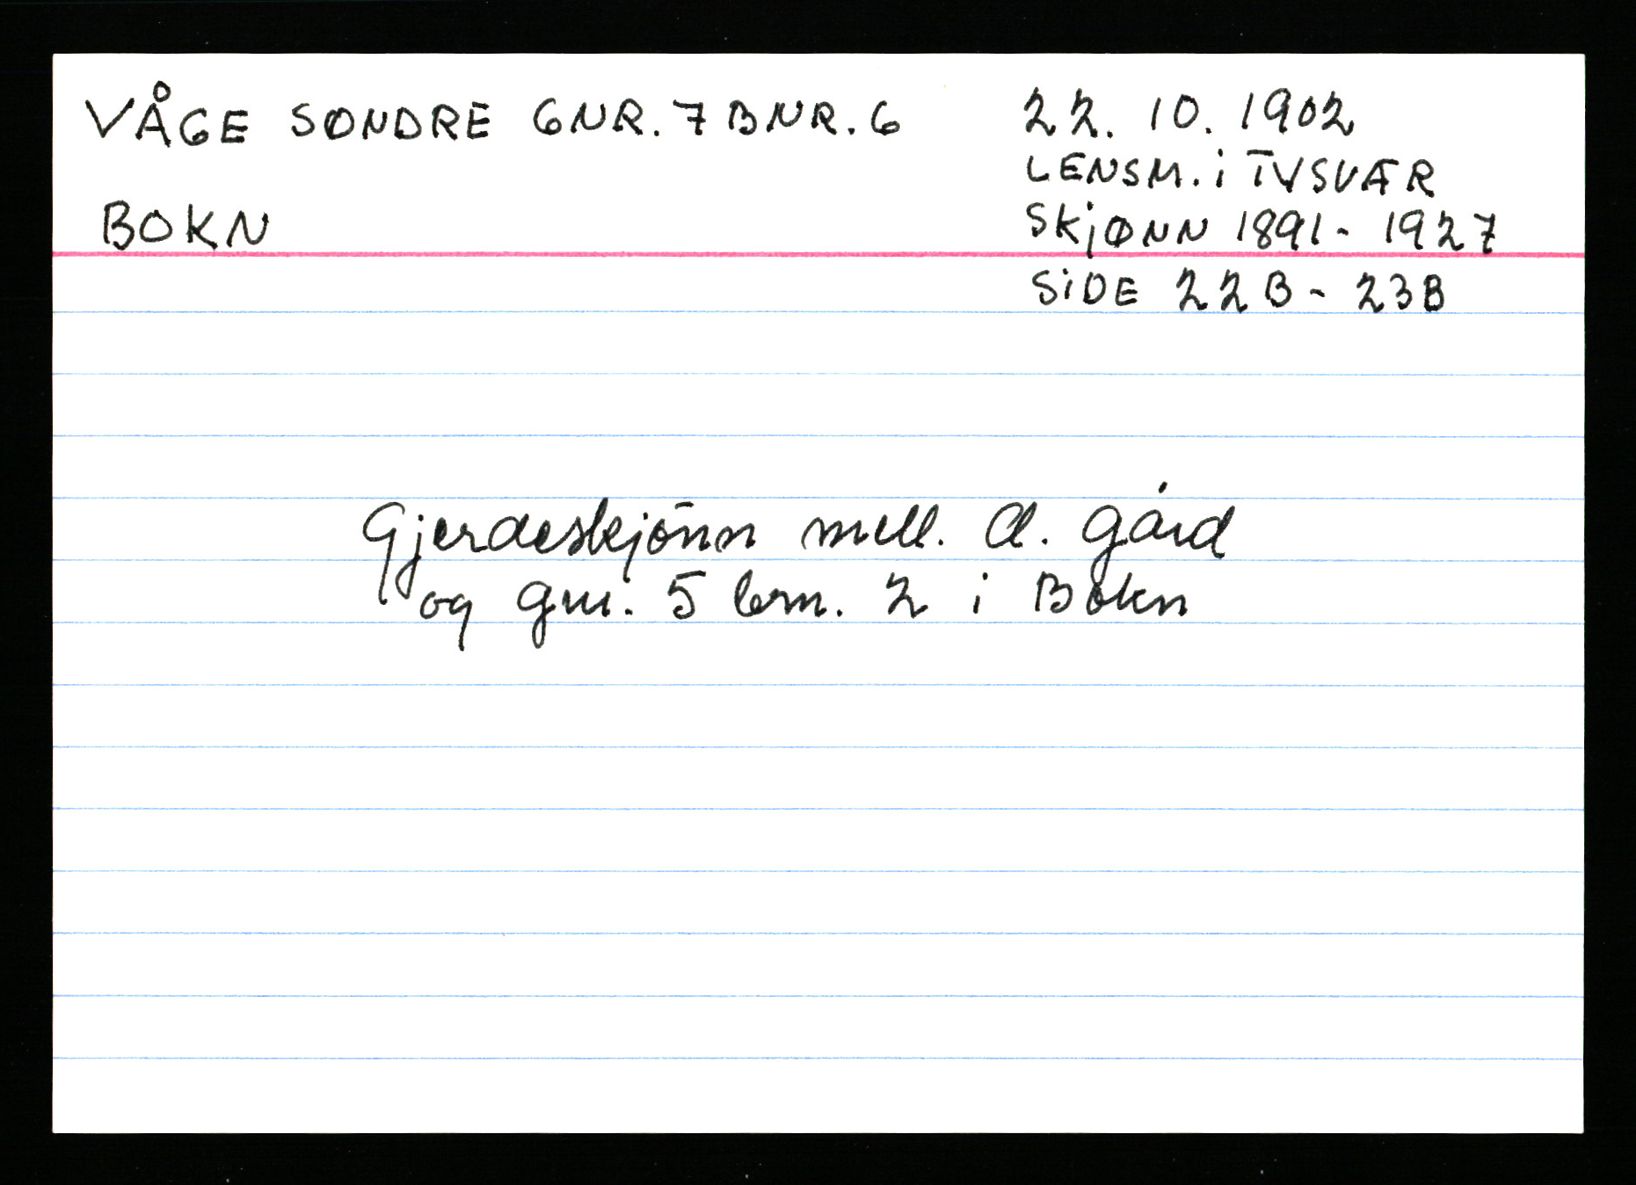 VÅGE SØNDRE GNR. 7 BNR. 6
BOKN
22. 10. 1902
LENSM. i TYSVÆR
SKJØNN 1891 - 1927
SIDE 22B - 23B
Gjerdeskjønn mell. d. gård
og gnr. 5 brn. 2 i Bokn